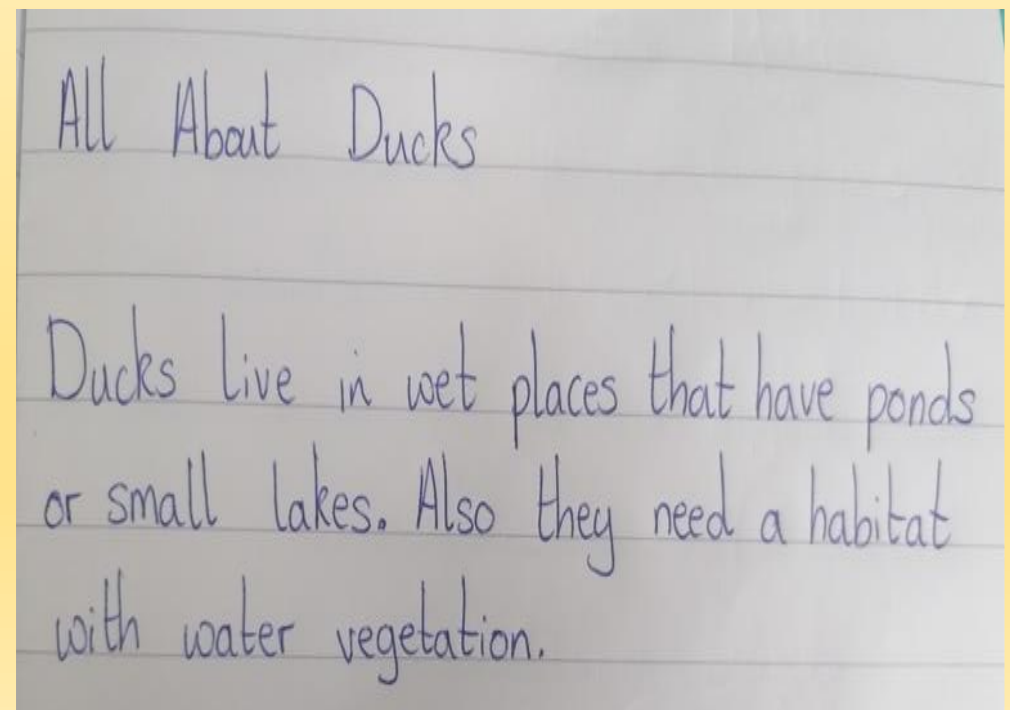 All About Ducks
Ducks live in wet places that have ponds
or small lakes. Also they need a habitat
with water vegetation.